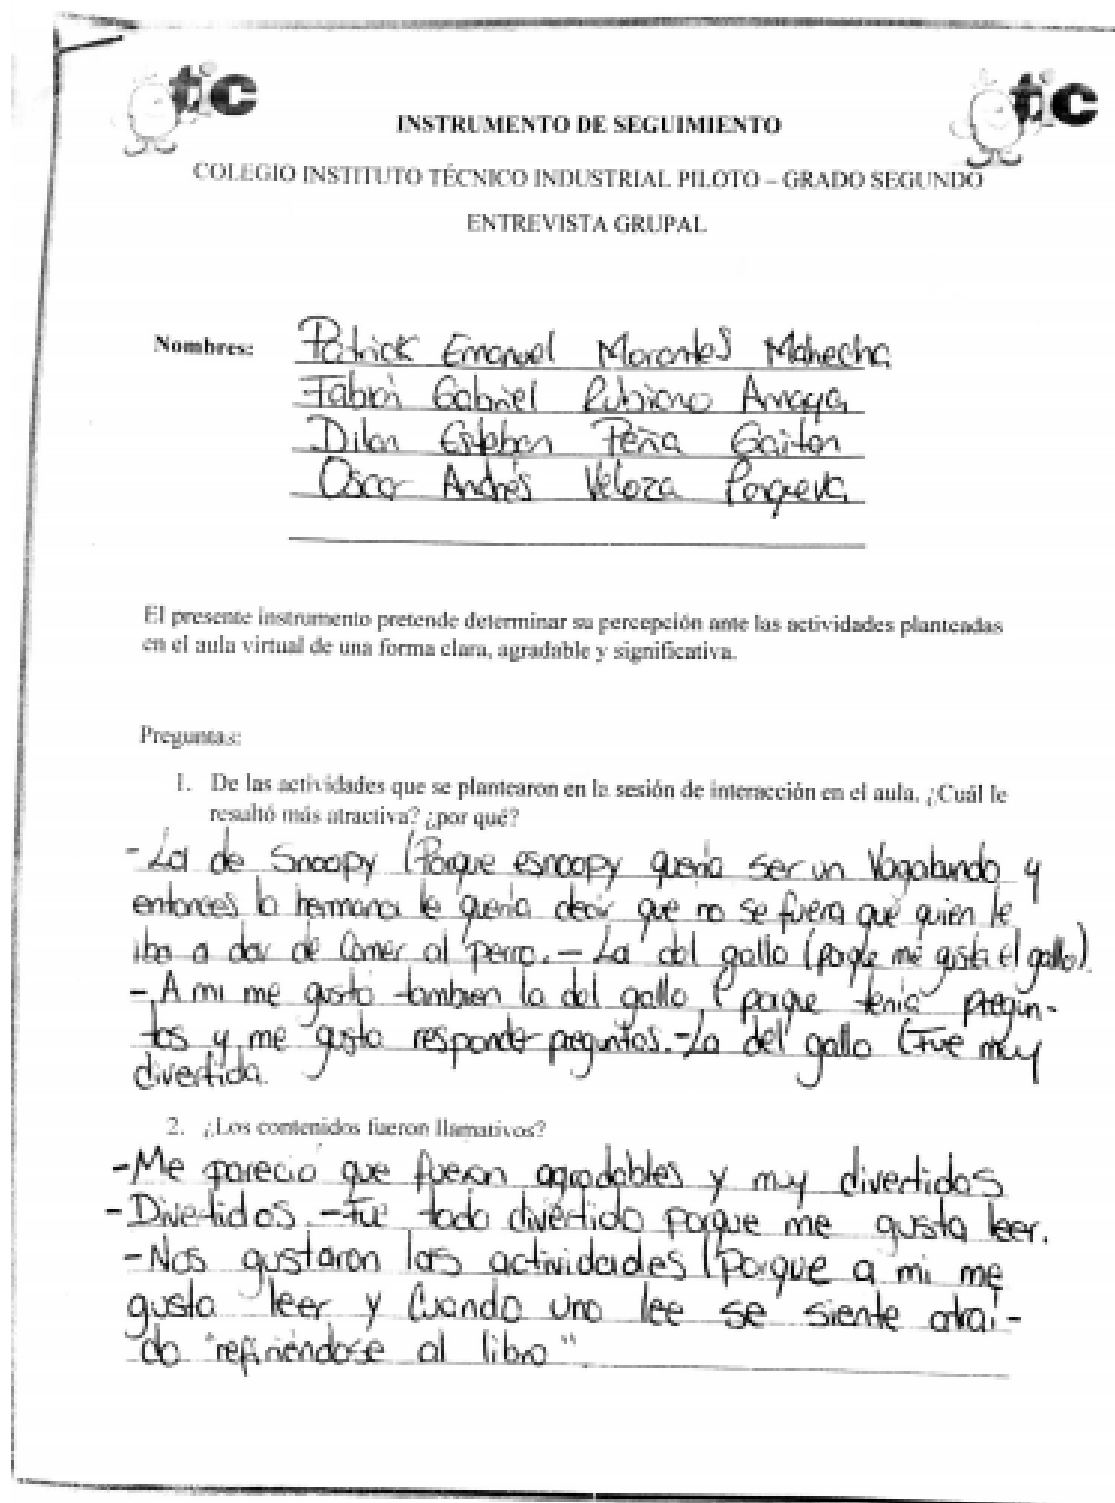 tic
tic
INSTRUMENTO DE SEGUIMIENTO
COLEGIO INSTITUTO TÉCNICO INDUSTRIAL PILOTO – GRADO SEGUNDO
ENTREVISTA GRUPAL
Nombres: Patrick Emanuel Morantes Mahecha
Fabián Gabriel Rubiano Amaya
Dilan Esteban Peña Gaitan
Oscar Andrés Veloza
El presente instrumento pretende determinar su percepción ante las actividades planteadas
en el aula virtual de una forma clara, agradable y significativa.
Preguntas:
1. De las actividades que se plantearon en la sesión de interacción en el aula. ¿Cuál le
resultó más atractiva? ¿por qué?
- La de Snoopy (Porque esnoopy quería ser un Vagabundo y
entonces la hermana le quería decir que no se fuera que quien le
iba a dar de Comer al perro. - La del gallo (porque me gusta el gallo)
- A mi me gustó tambien la del gallo (porque tenía pregun-
tas y me gusta responder preguntas. - La del gallo (Fue muy
divertida.
2. ¿Los contenidos fueron llamativos?
- Me pareció que fueron agradables y muy divertidos
- Divertidos. - Fue todo divertido porque me gusta leer.
- Nos gustaron las actividades (porque a mi me
gusta leer y Cuando uno lee se siente atraí-
do "refiriéndose al libro"